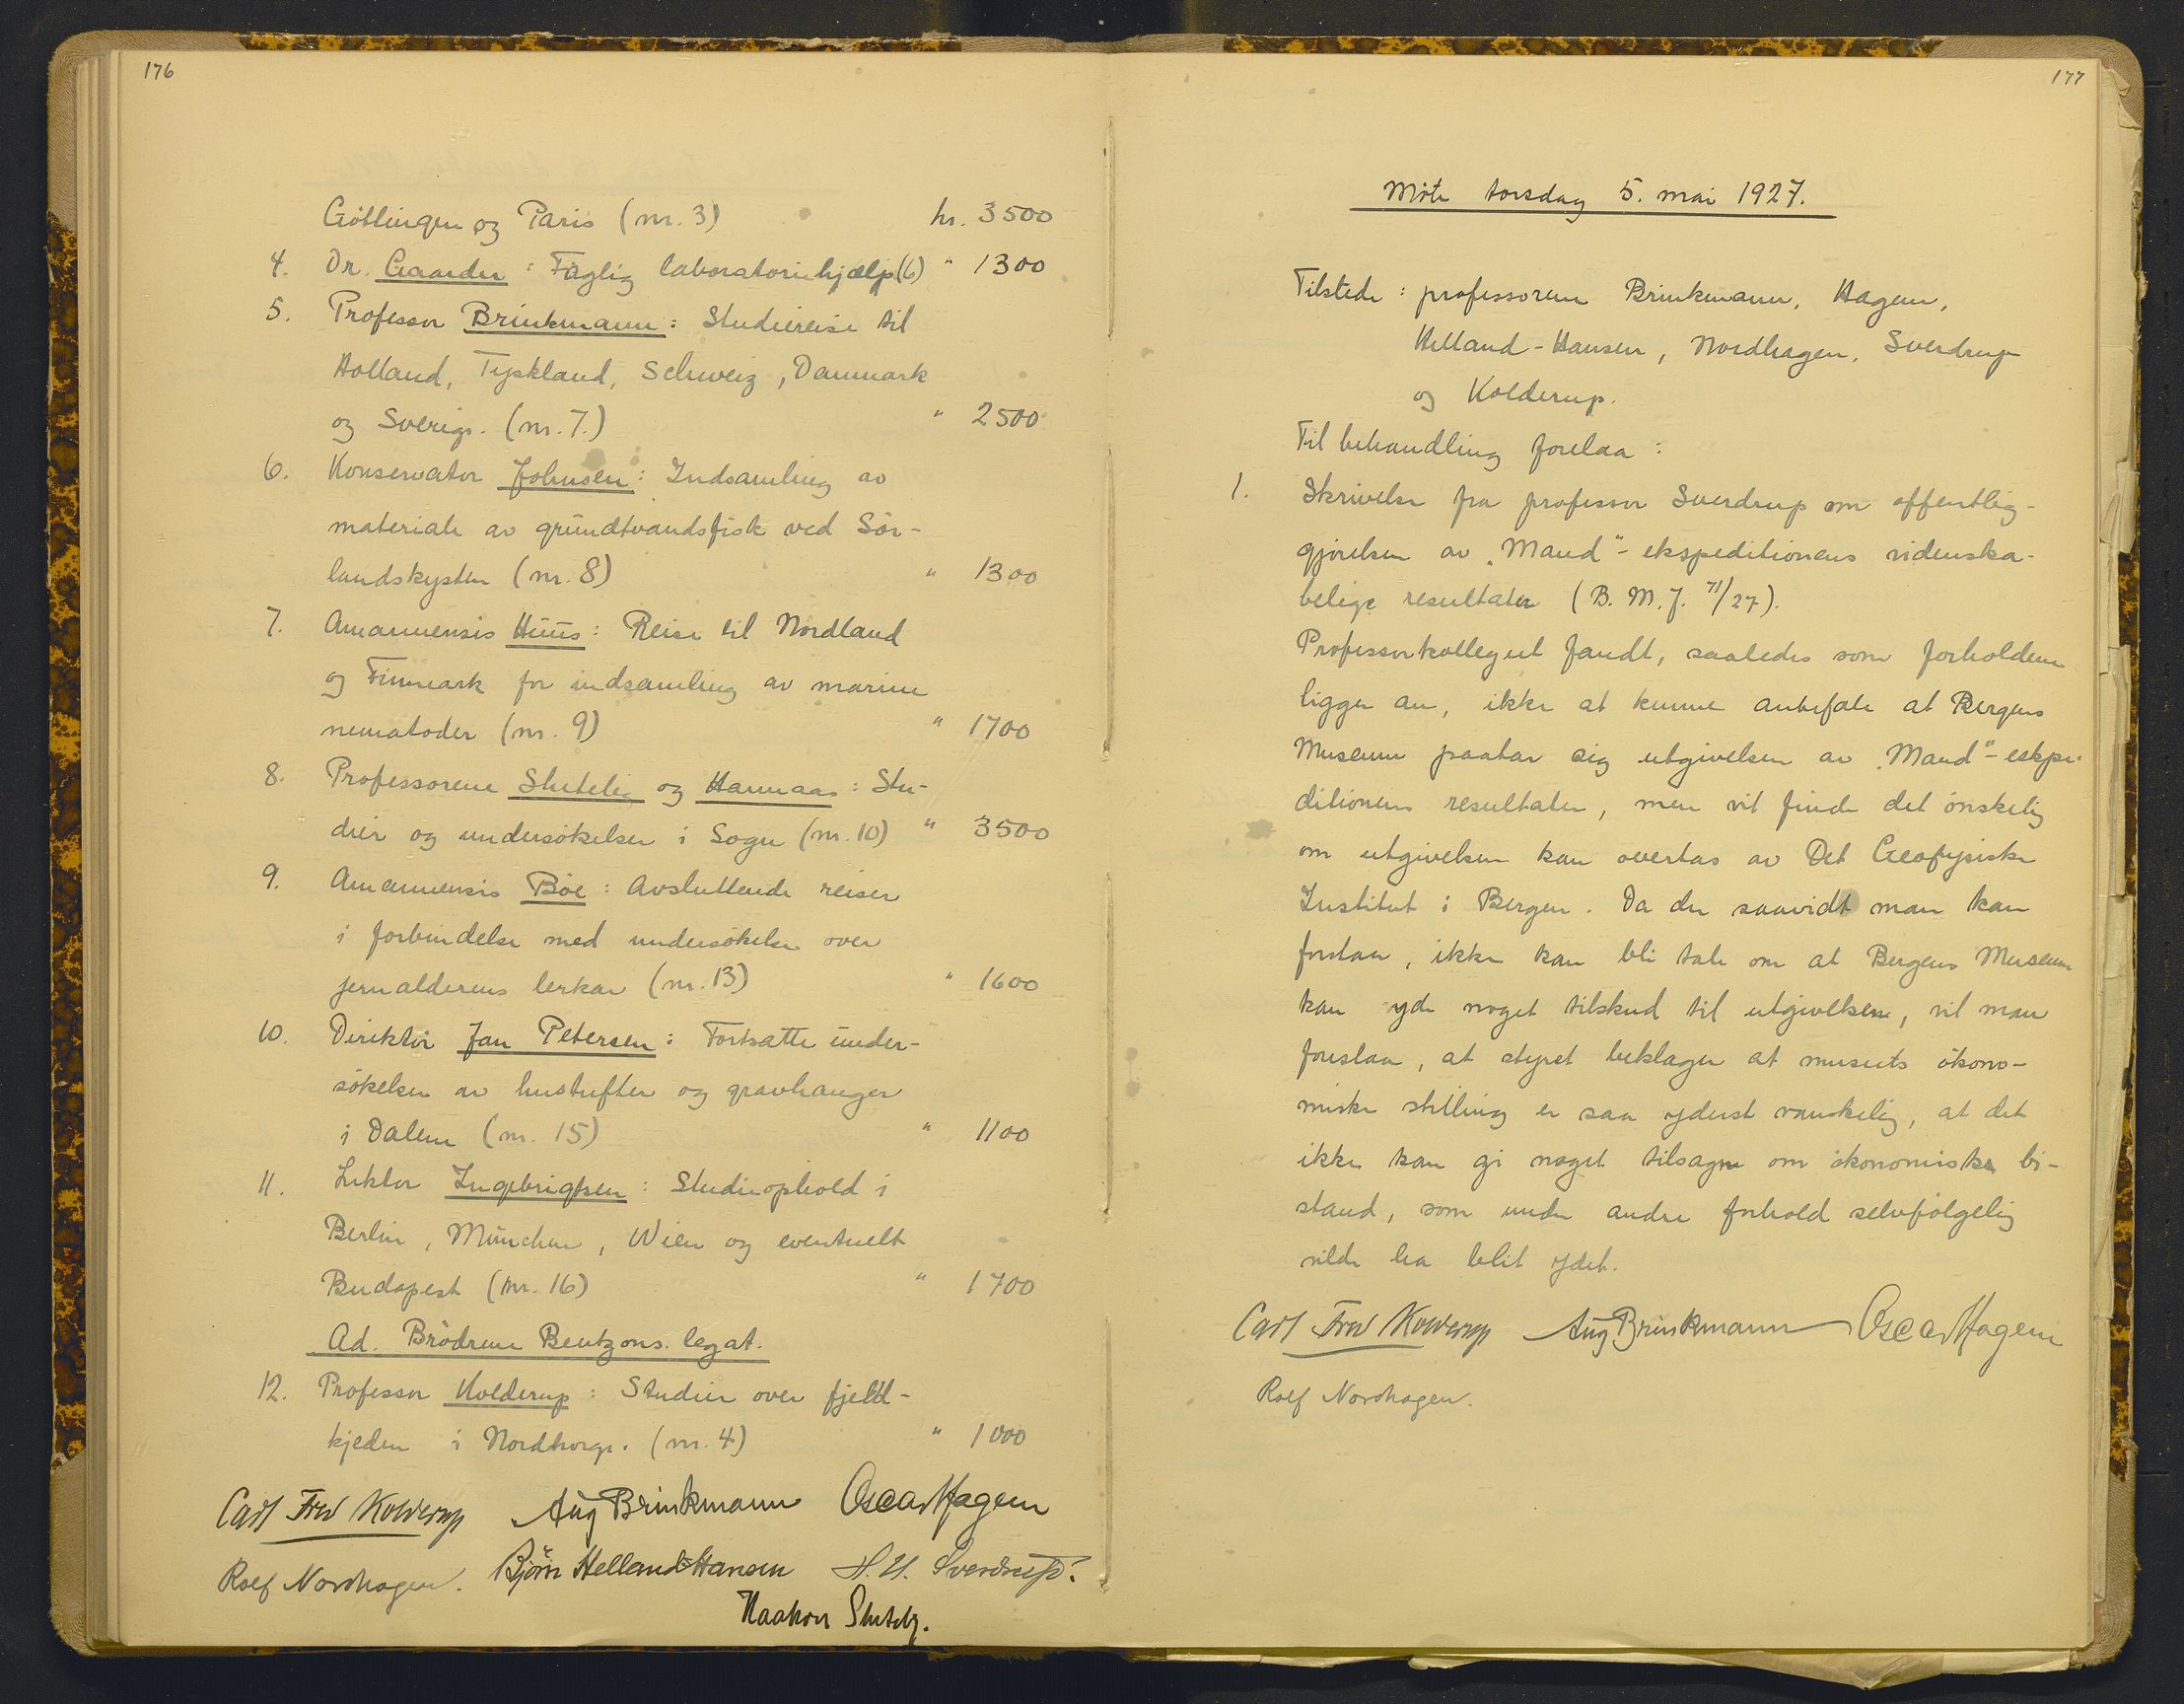 176
Göttingen og Paris (nr. 3) kr. 3500
4. Dr. Gaarder : Faglig laboratoriehjælp (6) " 1300
5. Professor Brinkmann : Studiereise til
Holland, Tyskland, Schweiz, Danmark
og Sverige. (nr. 7.) " 2500
6. Konservator Johnsen : Indsamling av
materiale av grundtvandsfisk ved Sör-
landskysten (nr. 8) " 1300
7. Amanuensis Huus : Reise til Nordland
og Finmark for indsamling av marine
nematoder (nr. 9) " 1700
8. Professorene Shetelig og Hannaas : Stu-
dier og undersökelser i Sogn (nr. 10) " 3500
9. Amanuensis Böe : Avsluttende reiser
i forbindelse med undersökelse over
jernalderens lerkar (nr. 13) " 1600
10. Direktör Jan Petersen : Fortsatte under-
sökelser av hustufter og gravhauger
i Dalene (nr. 15) " 1100
11. Lektor Ingebrigtsen : Studieophold i
Berlin, München, Wien og eventuelt
Budapest (nr. 16) " 1700
Ad. Brödrene Bentzons legat.
12. Professor Kolderup : Studier over fjeld-
kjeden i Nordhorge. (nr. 4) " 1000
Carl Fred Kolderup Aug Brinkmann Oscar Hagem
Rolf Nordhagen. Björn Helland-Hansen H. U. Sverdrup.
Haakon Shetelig.
177
Möte torsdag 5. mai 1927.
Tilstede : professorene Brinkmann, Hagem,
Helland-Hansen, Nordhagen, Sverdrup
og Kolderup.
Til behandling forelaa :
1. Skrivelse fra professor Sverdrup om offentlig-
gjörelsen av „Maud"-ekspeditionens videnska-
belige resultater (B. M. J. 71/27).
Professorkollegiet fandt, saaledes som forholdene
ligger an, ikke at kunne anbefale at Bergens
Museum paatar sig utgivelsen av „Maud"-eskpe-
ditionens resultater, men vil finde det önskelig
om utgivelsen kan overtas av Det Geofysiske
Institut i Bergen. Da der saavidt man kan
forstaa, ikke kan bli tale om at Bergens Museum
kan yde noget tilskud til utgivelsene, vil man
foreslaa, at styret beklager at museets ökono-
miske stilling er saa yderst vanskelig, at det
ikke kan gi noget tilsagn om ökonomisk bi-
stand, som under andre forhold selvfölgelig
vilde ha blit ydet.
Carl Fred Kolderup Aug Brinkmann Oscar Hagem
Rolf Nordhagen.